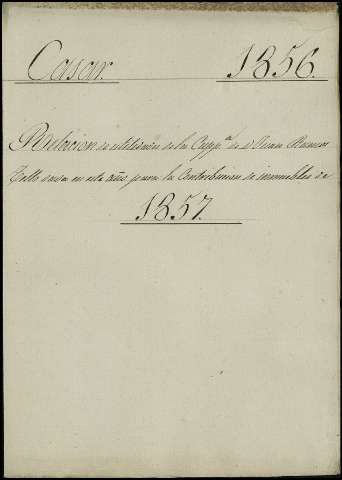 Casar. 1856.
Relacion de utilidades de la Capp.ª de D Juan Ramos
Tello dada en este año para la Contribucion de inmuebles de
1857.